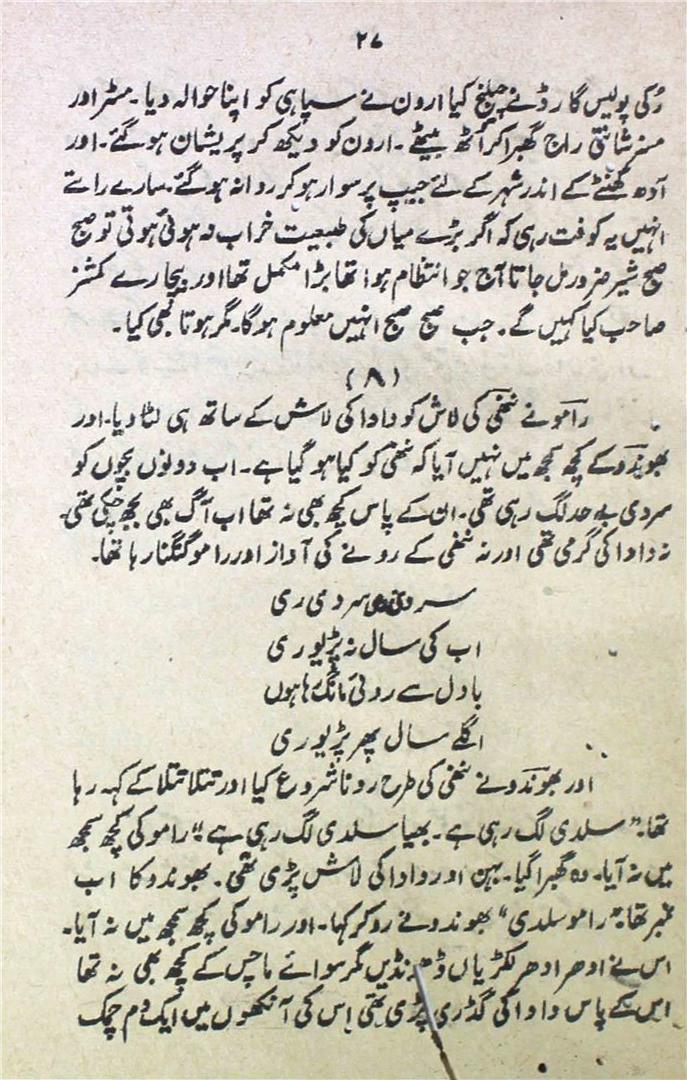 ۲۷
رُکی پولیس گارڈ نے چیلنج کیا ارون نے سپاہی کو اپنا حوالہ دیا۔ مسٹر اور
مسز شانتی راج گھبرا کر اُٹھ بیٹھے۔ ارون کو دیکھ کر پریشان ہو گئے۔ اور
آدھ گھنٹے کے اندر شہر کے لئے جیپ پر سوار ہو کر روانہ ہو گئے۔ سارے راتے
انہیں یہ کوفت رہی کہ اگر بڑے میاں کی طبیعت خراب نہ ہوئی ہوتی تو صبح
صبح شیر ضرور مل جاتا آج جو انتظام ہوا تھا بڑا مکمل تھا اور بیچارے کمشنر
صاحب کیا کہیں گے۔ جب صبح صبح انہیں معلوم ہو گا۔ مگر ہوتا بھی کیا۔
(۸)
رامو نے ننھی کی لاش کو دادا کی لاش کے ساتھ ہی لٹا دیا۔ اور
بھوندو کے کچھ سمجھ میں نہیں آیا کہ ننھی کو کیا ہو گیا ہے۔ اب دونوں بچوں کو
سردی بے حد لگ رہی تھی۔ ان کے پاس کچھ بھی نہ تھا اب آگ بھی بجھ چکی تھی۔
نہ دادا کی گرمی تھی اور نہ ننھی کے رونے کی آواز اور رامو گنگنا رہا تھا۔
سردی ری سردی ری
اب کی سال نہ پڑیو ری
بادل سے روئی مانگ رہا ہوں
اگلے سال پھر پڑیو ری
اور بھوندو نے ننھی کی طرح رونا شروع کیا اور تتلا تتلا کے کہہ رہا
تھا۔ "سلدی لگ رہی ہے۔ بھیا سلدی لگ رہی ہے"۔ رامو کی کچھ سمجھ
میں نہ آیا۔ وہ گھبرا گیا۔ بہن اور دادا کی لاش پڑی تھی۔ بھوندو کا اب
نمبر تھا۔ "رامو سلدی" بھوندو نے رو کر کہا۔ اور رامو کی کچھ سمجھ میں نہ آیا۔
اس نے ادھر ادھر لکڑیاں ڈھونڈیں مگر سوائے ماچس کے کچھ بھی نہ تھا
اس کے پاس دادا کی گڈری پڑی تھی اس کی آنکھوں میں ایک دم چمک